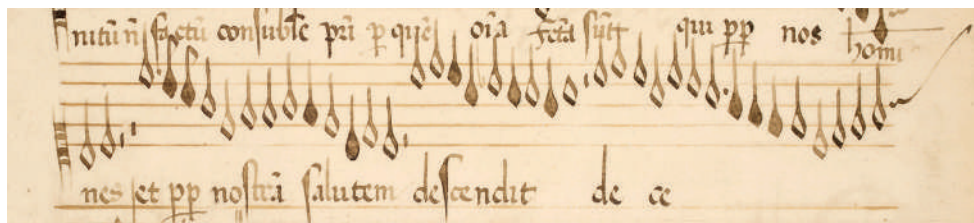 nitū n̄ factū consubſtⁱ̄e pr̄i p quē oīa fctā sūt qui pp nos homi
nes et pp nostrā salutem descendit de ce